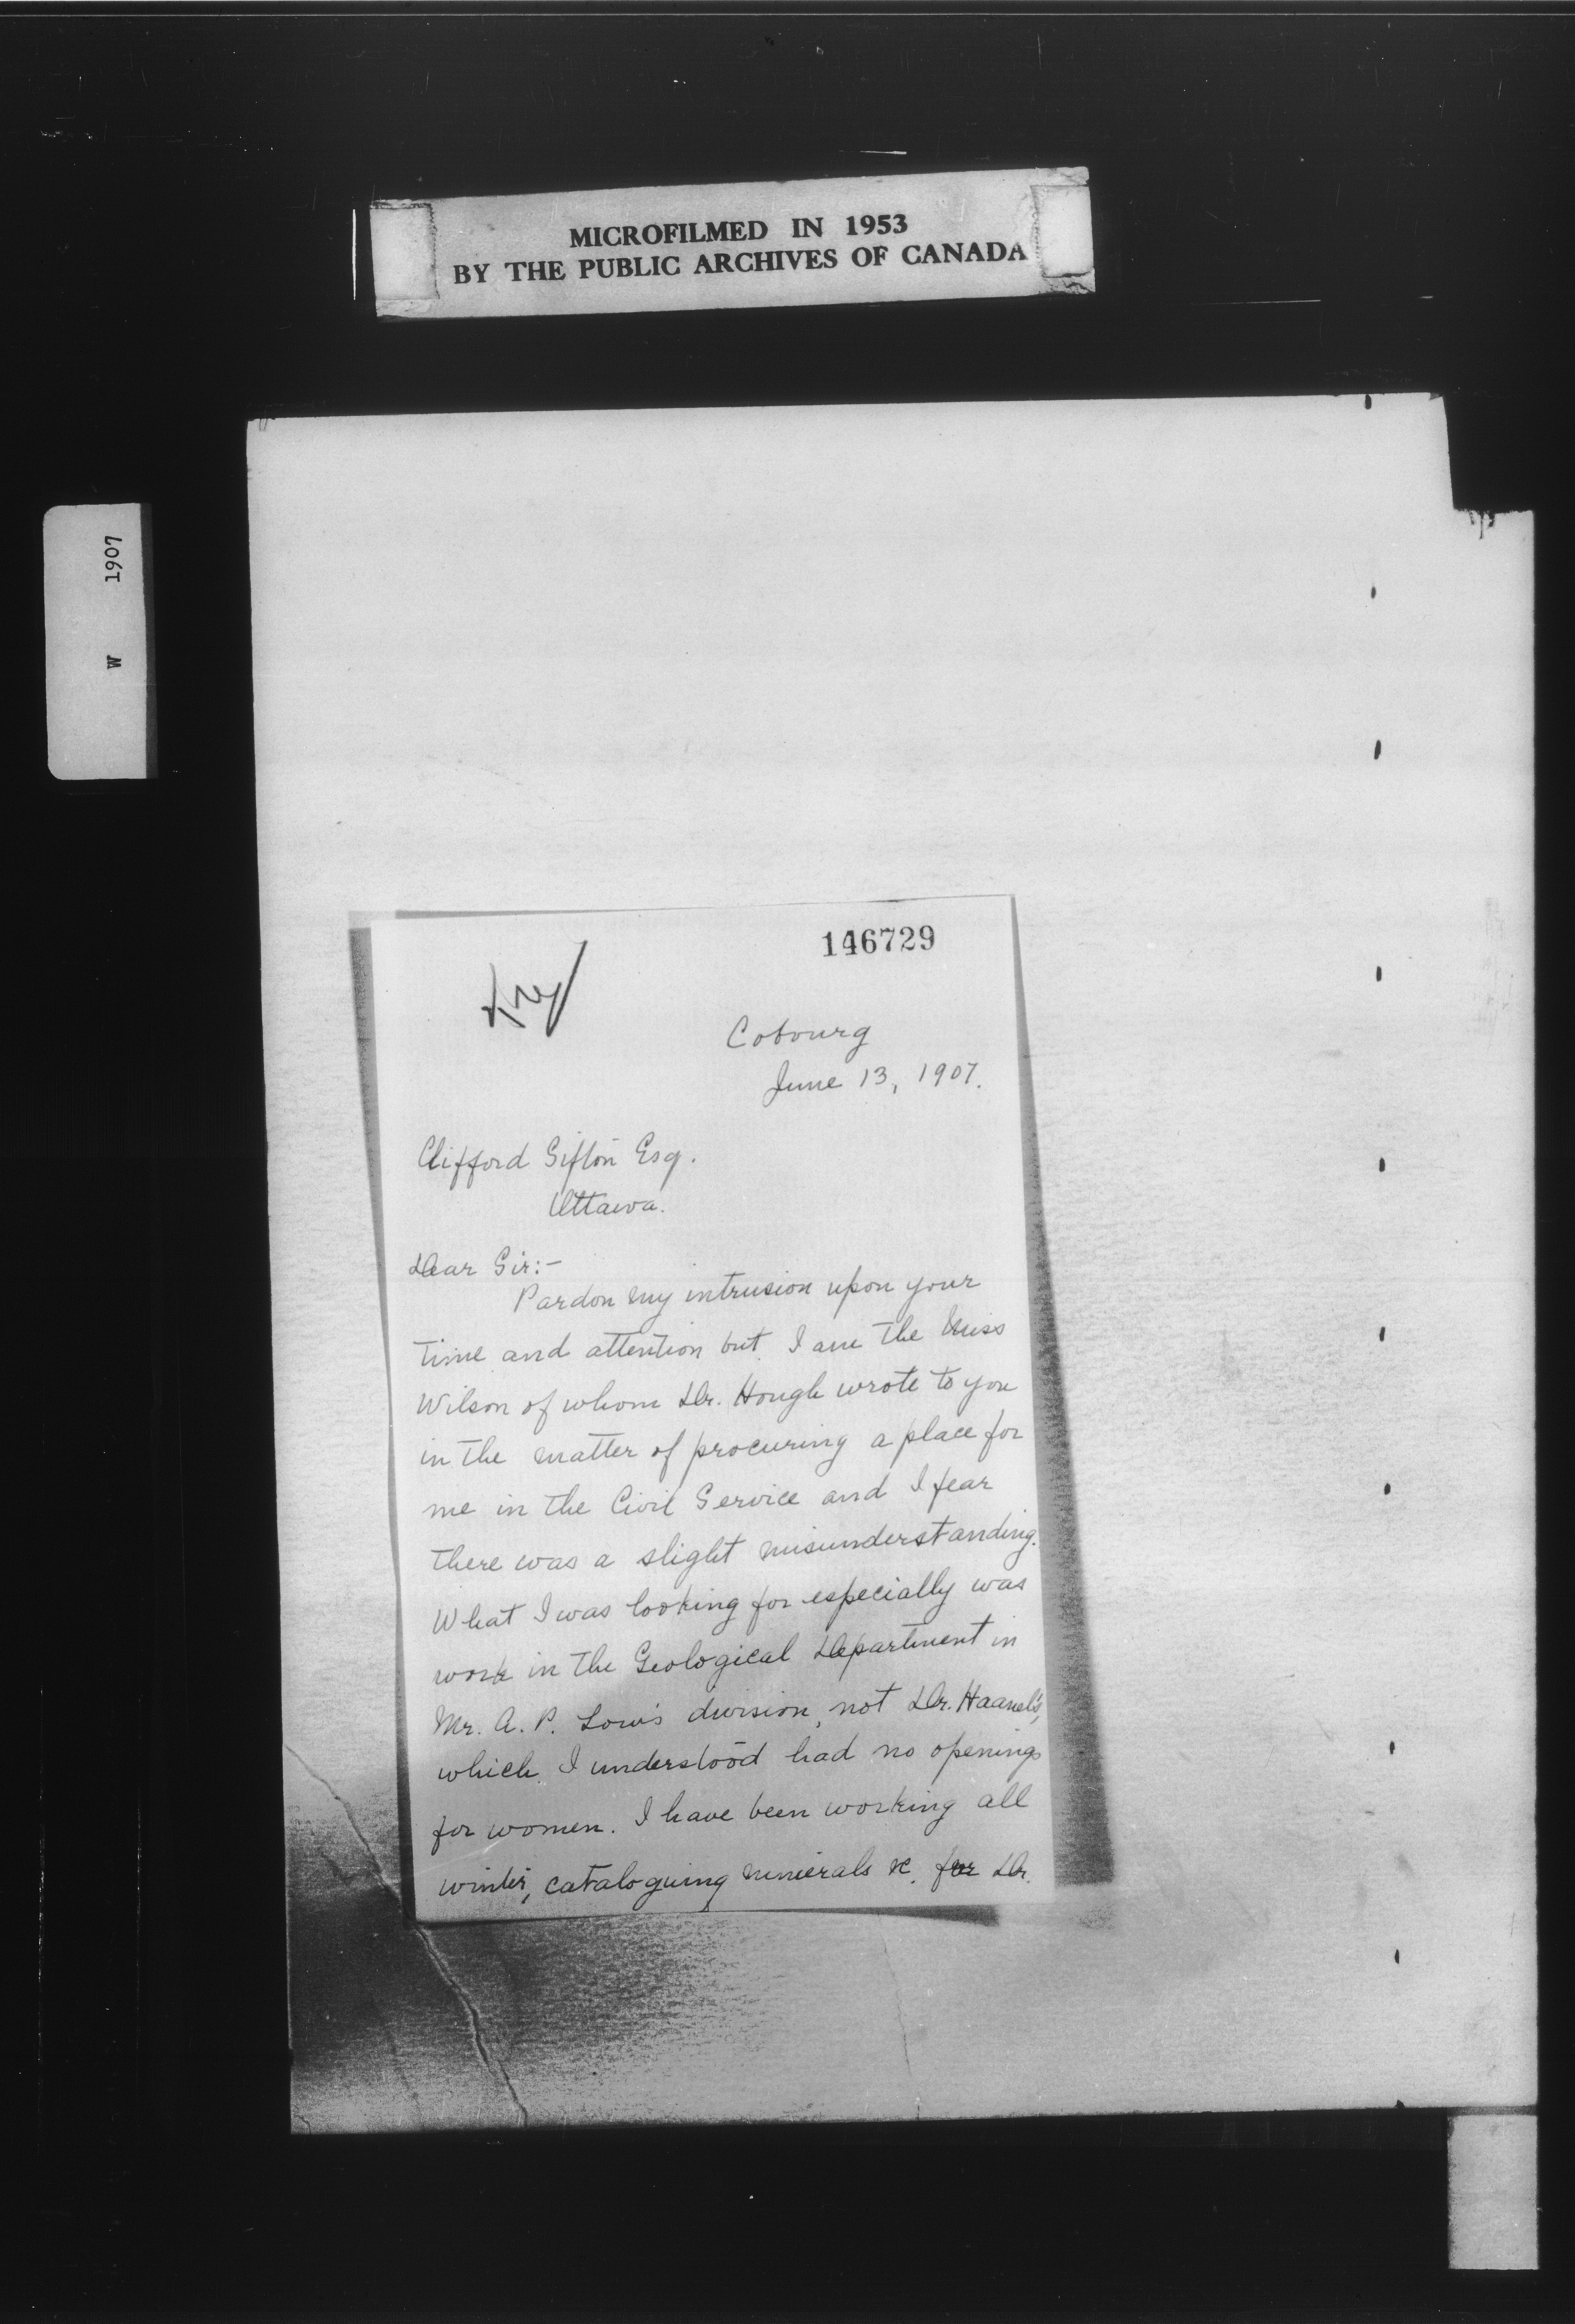 MICROFILMED IN 1953
BY THE PUBLIC ARCHIVES OF CANADA
W 1907
146729
Cobourg
June 13, 1907.
Clifford Sifton Esq.
Ottawa.
Dear Sir:-
Pardon my intrusion upon your
time and attention but I am the Miss
Wilson of whom Dr. Hough wrote to you
in the matter of procuring a place for
me in the Civil Service and I fear
there was a slight misunderstanding.
What I was looking for especially was
work in the Geological Department in
Mr. A. P. Low's division, not Dr. Haanel's,
which I understood had no openings
for women. I have been working all
winter, cataloguing minerals &c. for Dr.